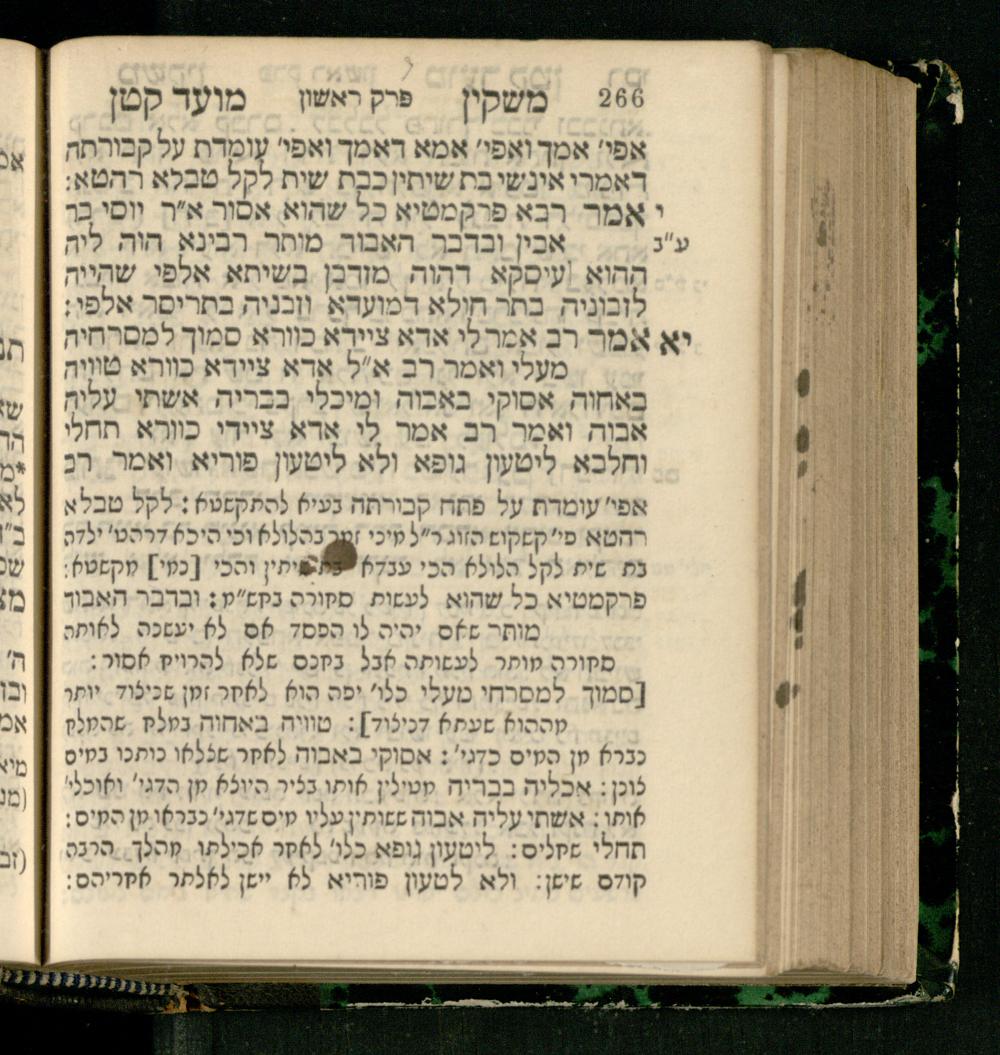 266 משקין פרק ראשון מועד קטן
אפי׳ אמך ואפי׳ אמא דאמך ואפי׳ עומדת על קבורתה
דאמרי אינשי בת שיתין כבת שית לקל טבלא רהטא:
י אמר רבא פרקמטיא כל שהוא אסור א״ר יוסי בר
ע״ב אבין ובדבר האבוד מותר רבינא הוה ליה
ההוא עיסקא דהוה מזדבן בשיתא אלפי שהייה
לזבוניה בתר חולא דמועדא וזבניה בתריסר אלפי:
יא אמר רב אמר לי אדא ציידא כוורא סמוך למסרחיה
מעלי ואמר רב א״ל אדא ציידא כוורא טוויה
באחוה אסוקי באבוה ומיכלי בבריה אשתי עליה
אבוה ואמר רב אמר לי אדא ציידי כוורא תחלי
וחלבא ליטעון גופא ולא ליטעון פוריא ואמר רב
אפי׳ עומדת על פתח קבורתה בעיא להתקשטא: לקל טבלא
רהטא פי׳ קשקוש הזוג ר״ל מיני זמר בהלולא וכי היכא דרהט׳ ילדה
בת שית לקל הלולא הכי עבדא בת שיתין והכי [נמי] מקשטא:
פרקמטיא כל שהוא לעשות סחורה בחש״מ: ובדבר האבוד
מותר שאם יהיה לו הפסד אם לא יעשנה לאותה
סחורה מותר לעשותה אבל בחנם שלא להרויח אסור:
[סמוך למסרחי מעלי כלו׳ יפה הוא לאחר זמן שניצוד יותר
מההוא שעתא דניצוד]: טוויה באחוה במלח שהמלח
נברא מן המים כדגי׳: אסוקי באבוה לאחר שצלאו נותנו במים
צונן: אכליה בבריה מטילין אותו בציר היוצא מן הדגי׳ ואוכלי׳
אותו: אשתי עליה אבוה ששותין עליו מים שדגי׳ נבראו מן המים:
תחלי שחלים: ליטעון גופא כלו׳ לאחר אכילתו מהלך הרבה
קודם שישן: ולא לטעון פוריא לא יישן לאלתר אחריהם: